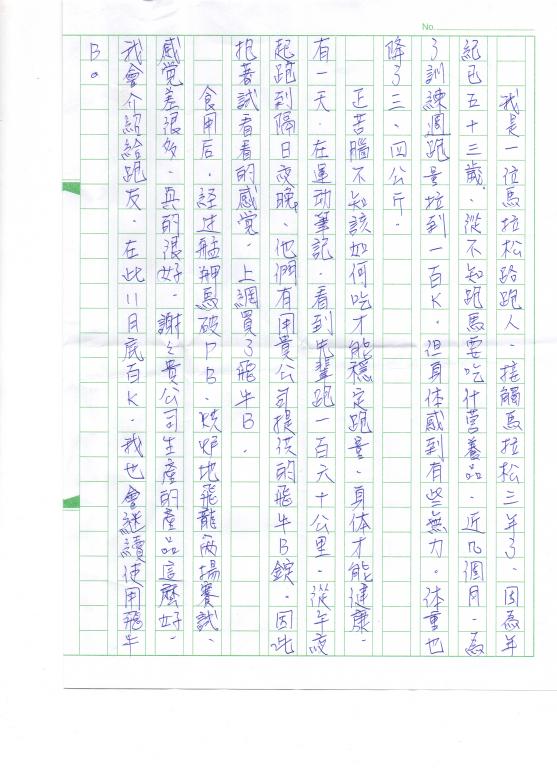 No.
我是一位馬拉松路跑人．接觸馬拉松三年了．因為年
紀已五十三歲．從不知跑馬要吃什營養品．近几個月．為
了訓練週跑量拉到一百K．但身体感到有些無力。体重也
降了三、四公斤．
正苦腦不知該如何吃才能穩定跑量．身体才能健康．
有一天．在運动筆記．看到先輩跑一百六十公里．從午夜
起跑到隔日夜晚、他們有用貴公司提供的飛牛B錠．因此
抱著試看看的感覚．上網買了飛牛B．
食用后．经过艋舺馬破PB．焢炉地飛龍兩場賽試、
感覚差很多．真的很好．謝々貴公司生產的產品這麼好．
我會介紹給跑友．在此11月底百K．我也會継續使用飛牛
B。